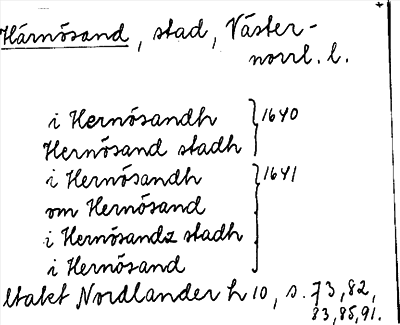 Härnösand, stad, Väster-
norrl. l.
i Hernösandh } 1640
Hernösand stadh
i Hernösandh } 1641
om Hernösand
i Hernösandz stadh
i Hernösand
Utakt Nordlander h 10, s. 73, 82,
83, 85, 91.